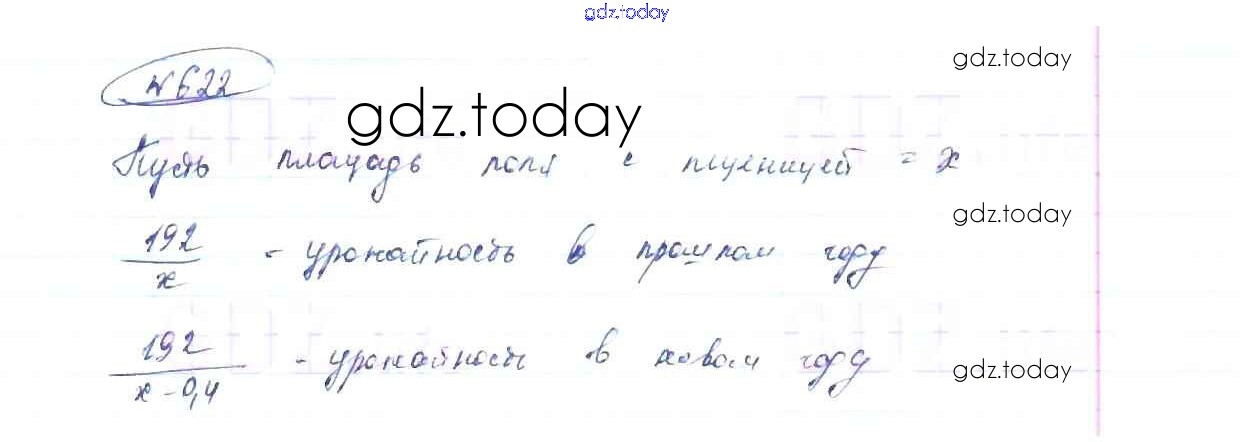 gdz.today
gdz.today
№622
gdz.today
Пусть площадь поля с пшеницей = x
gdz.today
192/x - урожайность в прошлом году
192/(x - 0,4) - урожайность в новом году
gdz.today